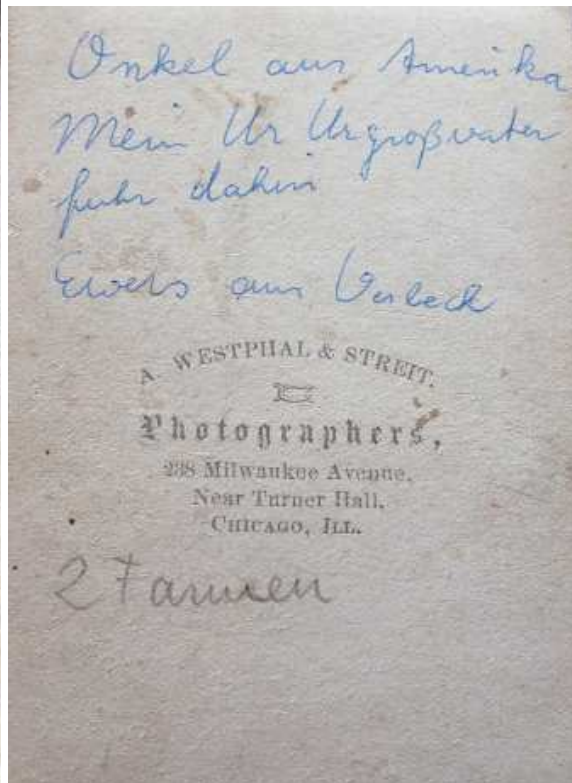 Onkel aus Amerika
Mein Ur Urgroßvater
fuhr dahin
Ewers aus
A. WESTPHAL & STREIT.
Photographers,
238 Milwaukee Avenue,
Near Turner Hall,
CHICAGO, ILL.
2 Farmen